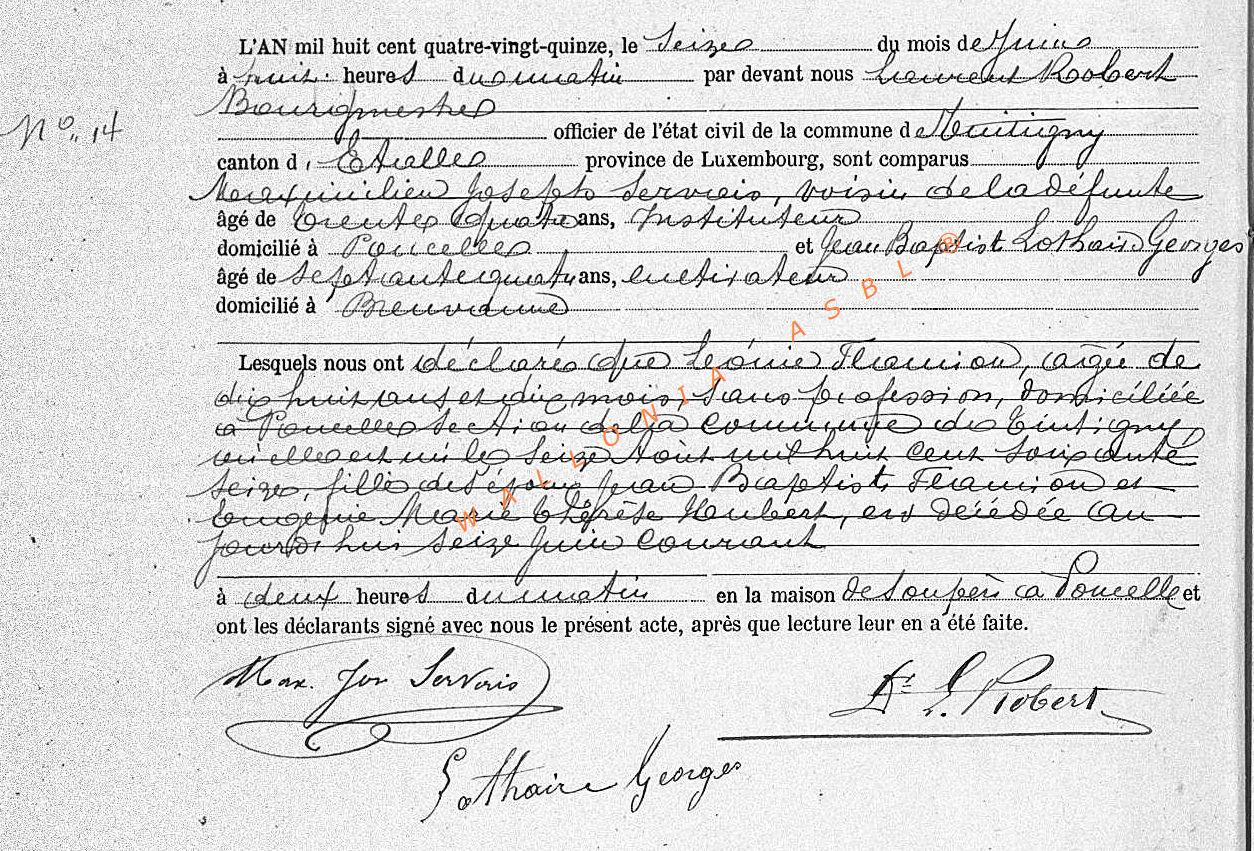 L'AN mil huit cent quatre-vingt-quinze, le Seize du mois de Juin
à huit heures du matin par devant nous Laurent Robert
Bourgmestre
Nº. 14
officier de l'état civil de la commune de Tintigny
canton d'Etalle province de Luxembourg, sont comparus
Maximilien Joseph Servais, voisin de la défunte
âgé de trente quatre ans, Instituteur
domicilié à Poncelle et Jean Baptiste Lothaire Georges
âgé de septante quatre ans, cultivateur
domicilié à Breuvanne
Lesquels nous ont déclaré que Léonie Flamion, agée de
dix huit ans et dix mois, sans profession, domiciliée
à Poncelle section de la commune de Tintigny,
où elle est née le seize Août mil huit cent soixante
seize, fille de Jean Baptiste Flamion et
Eugénie Marie Thérèse Houbert, est décédée au
jourd'hui seize Juin courant
à deux heures du matin en la maison de son père à Poncelle et
ont les déclarants signé avec nous le présent acte, après que lecture leur en a été faite.
Max. Jos Servais
Dr L. Robert
Lothaire Georges
WALLONIA ASBL ®